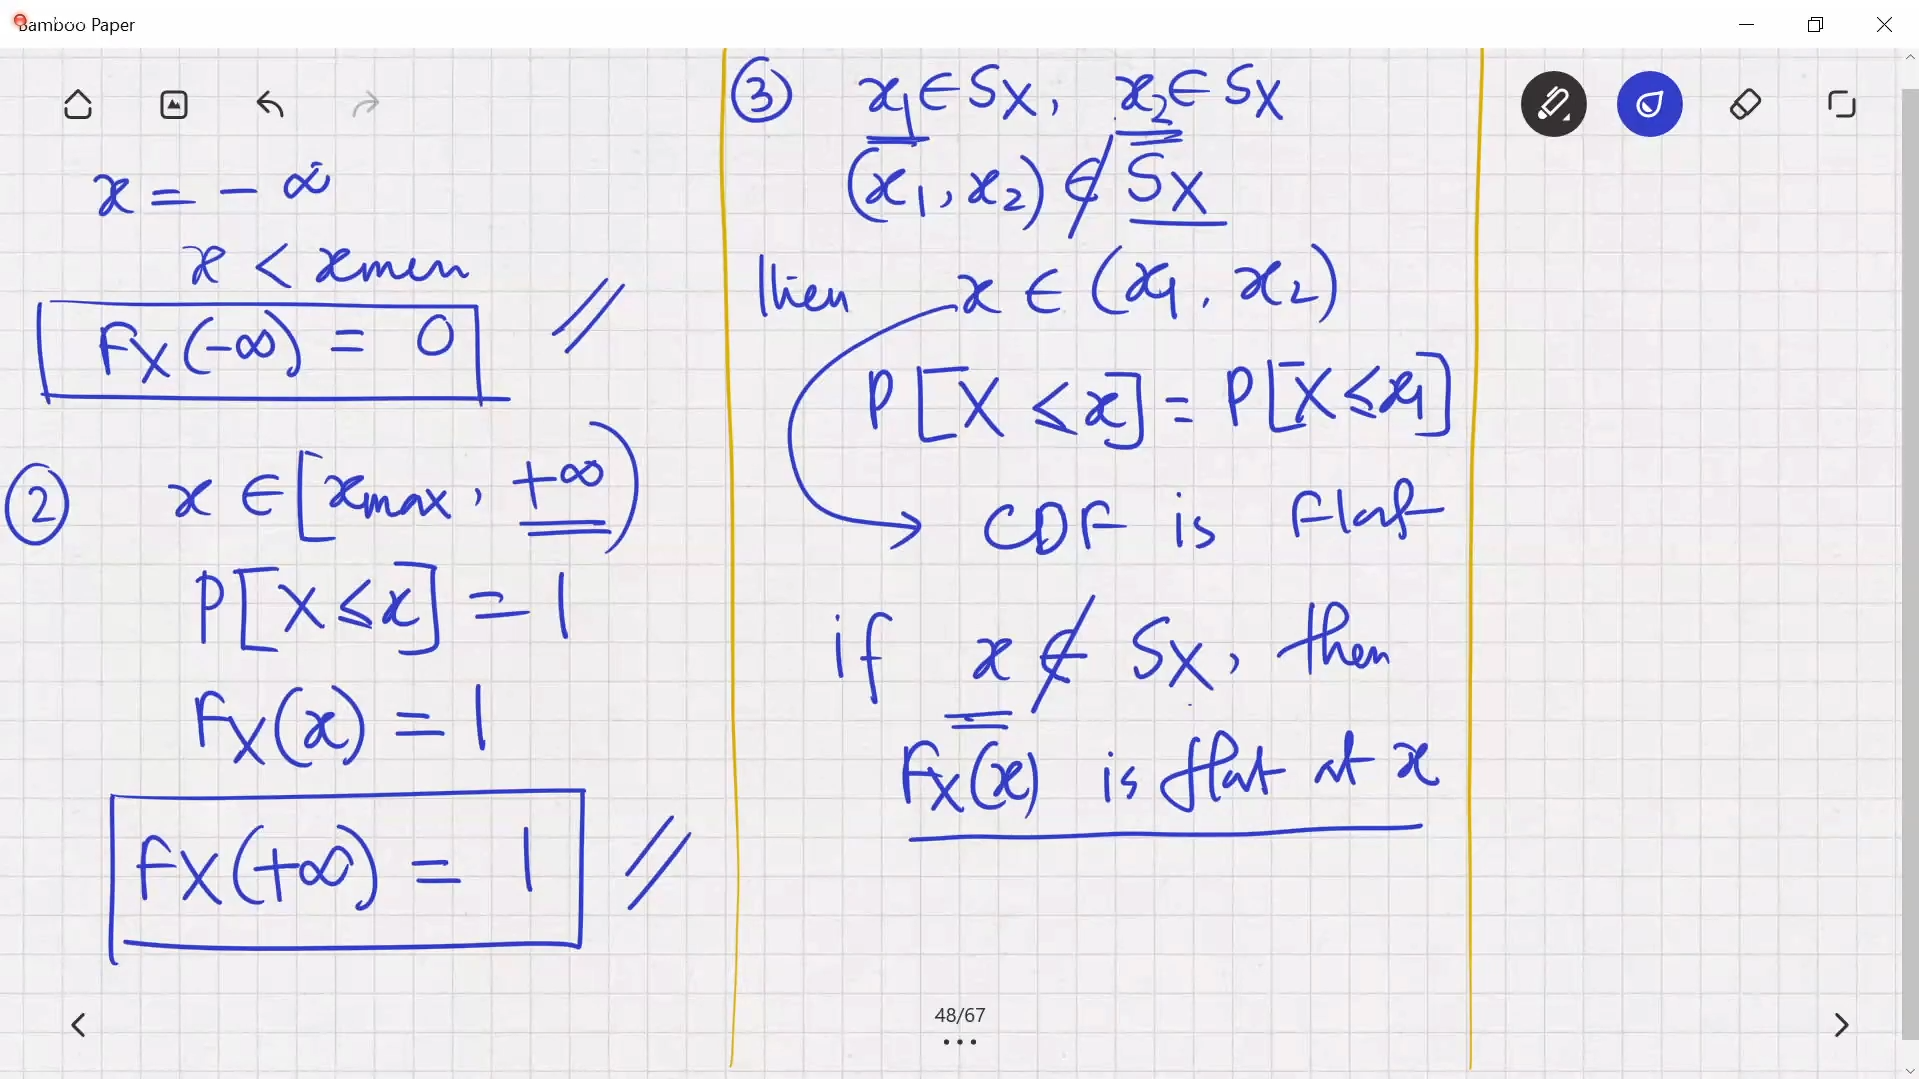 Bamboo Paper
x = - ∞
x < xmin
FX(-∞) = 0
② x ∈ [xmax, +∞)
P[X ≤ x] = 1
FX(x) = 1
FX(+∞) = 1
③ x1 ∈ SX, x2 ∈ SX
(x1, x2) ∉ SX
then x ∈ (x1, x2)
P[X ≤ x] = P[X ≤ x1]
CDF is flat
if x ∉ SX, then
FX(x) is flat at x
48/67